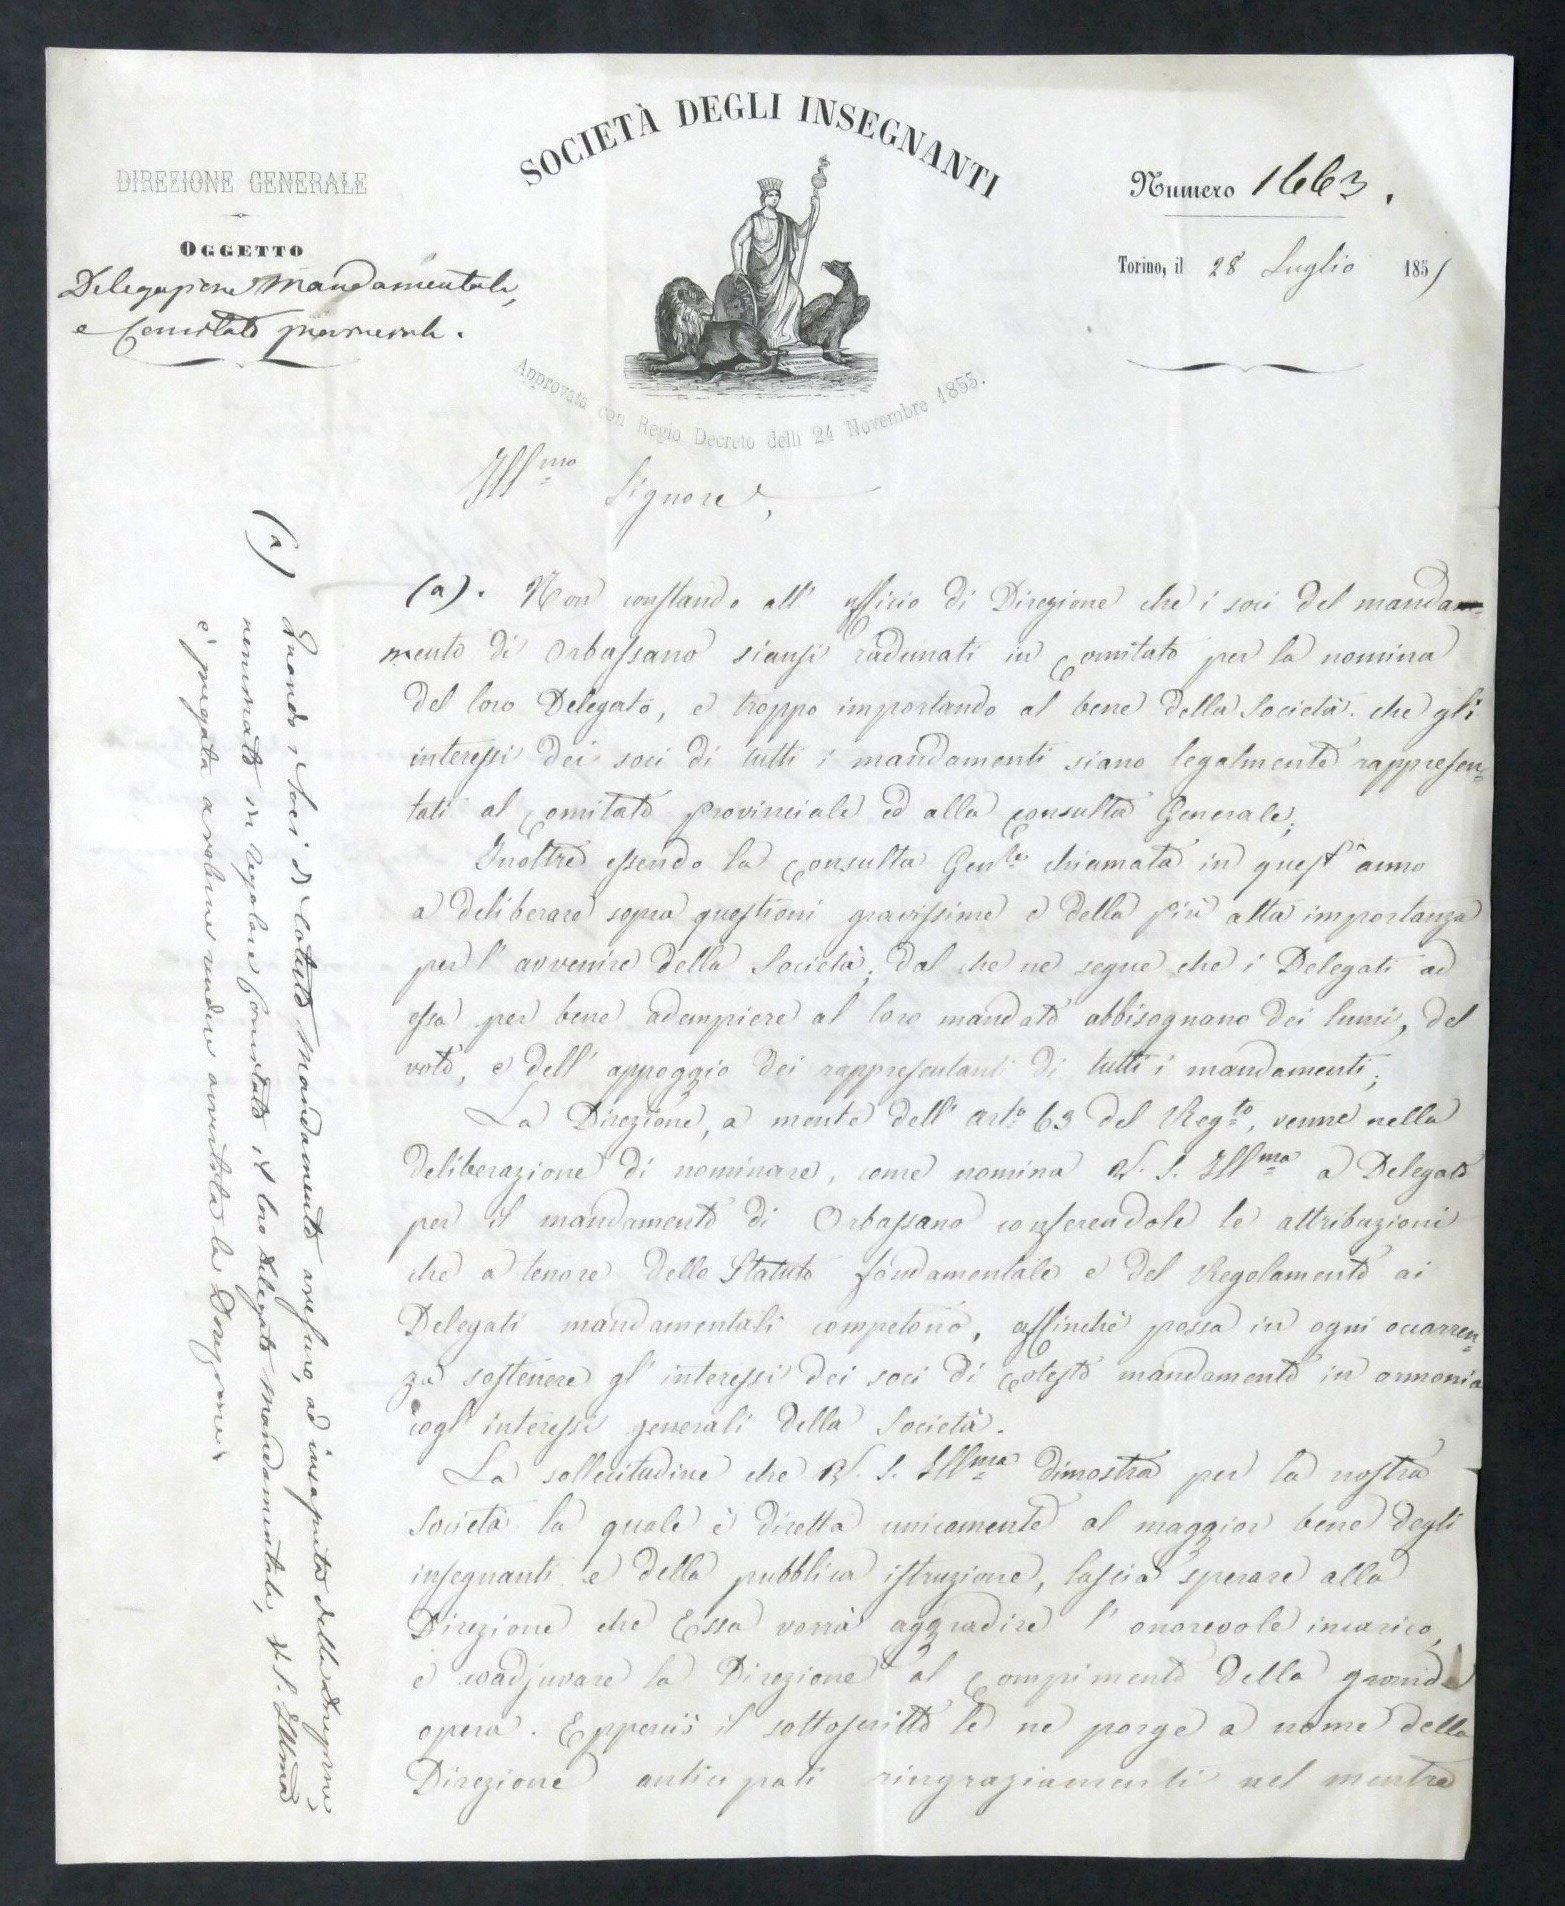 SOCIETÀ DEGLI INSEGNANTI
DIREZIONE GENERALE
OGGETTO
Delegazione Mandamentale,
e Comitato provinciale.
Numero 1663.
Torino, il 28 Luglio 185
Approvata con Regio Decreto delli 24 Novembre 1855.
Ill.mo Signore,
(a). Non constando all' ufficio di Direzione che i soci del manda-
mento di Orbassano siansi radunati in Comitato per la nomina
del loro Delegato, e troppo importando al bene della Società che gli
interessi dei soci di tutti i mandamenti siano legalmente rappresen=
tati al Comitato provinciale ed alla Consulta Generale;
Inoltre essendo la Consulta Gen.le chiamata in quest' anno
a deliberare sopra questioni gravissime e della più alta importanza
per l' avvenire della Società; dal che ne segue che i Delegati ad
essa per bene adempiere al loro mandato abbisognano dei lumi, del
voto, e dell' appoggio dei rappresentanti di tutti i mandamenti;
La Direzione, a mente dell' art.o 63 del Reg.to, venne nella
deliberazione di nominare, come nomina V. S. Ill.ma a Delegato
per il mandamento di Orbassano conferendole le attribuzioni
che a tenore dello Statuto fondamentale e del Regolamento ai
Delegati mandamentali competono, affinchè possa in ogni occorren=
za sostenere gl' interessi dei soci di Cotesto mandamento in armonia
cogl' interessi generali della Società.
La sollecitudine che V. S. Ill.ma dimostra per la nostra
Società la quale è diretta unicamente al maggior bene degli
insegnanti e della pubblica istruzione, lascia sperare alla
Direzione che Essa vorrà aggradire l' onorevole incarico,
e coadjuvare la Direzione al Compimento della grande
opera. Epperciò il sottoscritto le ne porge a nome della
Direzione anticipati ringraziamenti nel mentre
(a) Quando i Soci di Cotesto Mandamento avessero, ad insaputa della Direzione,
nominato in regolare Comitato il loro Delegato Mandamentale, V. S. Ill.ma
è pregata a volerne rendere avvertita la Direzione.